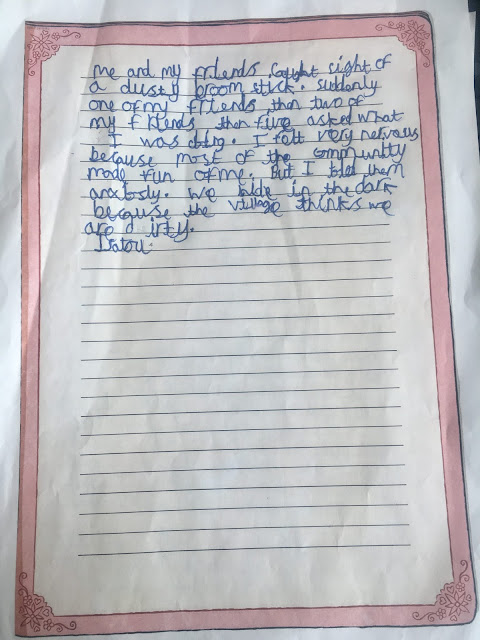 me and my friends caught sight of
a dusty broom stick. suddenly
one of my friends then two of
my friends then five asked what
I was doing. I felt very nervous
because most of the community
made fun of me. But I told them
anxiosly. we hide in the dark
because the village thinks we
are dirty.
Isatou.